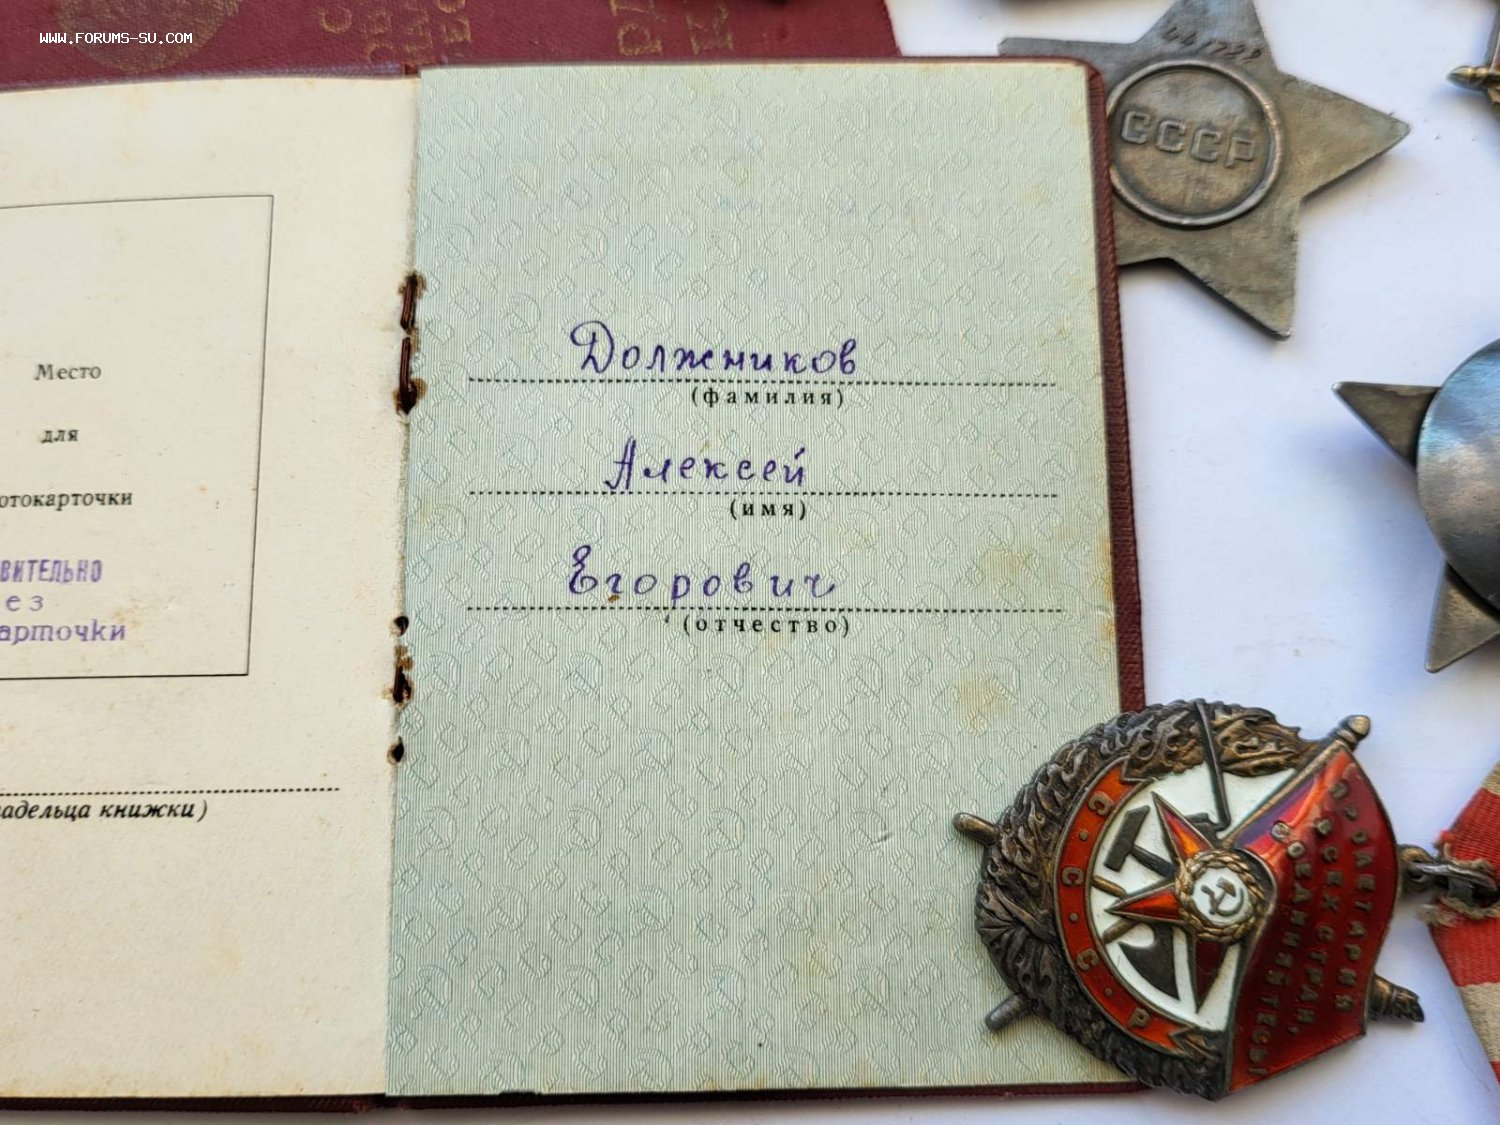 WWW.FORUMS-SU.COM
Место
для
отокарточки
ВИТЕЛЬНО
ез
арточки
адельца книжки)
Должников
(фамилия)
Алексей
(имя)
Егорович
(отчество)
СССР
С·С·С·Р
ПРОЛЕТАРИИ
ВСЕХ СТРАН,
СОЕДИНЯЙТЕСЬ!